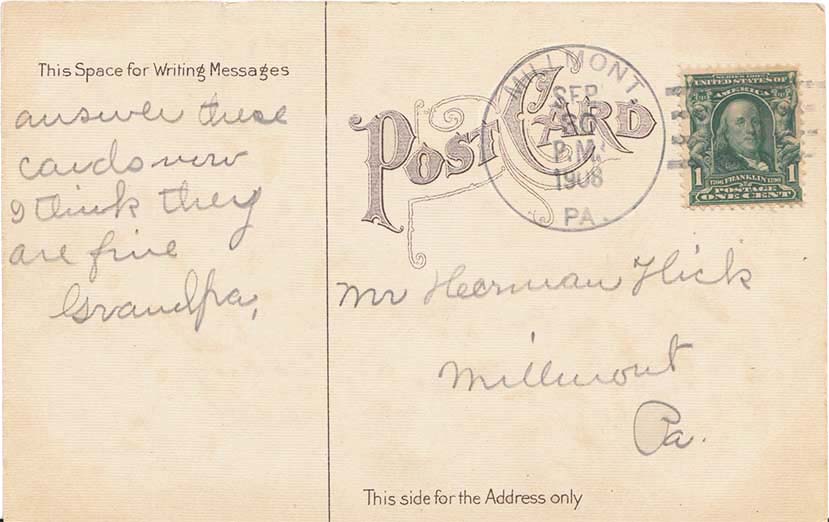 This Space for Writing Messages
answer these
cards now
I think they
are fine
Grandpa,
POST CARD
MILLMONT
SEP
30
P.M.
1908
PA.
SERIES 1902
UNITED STATES OF
AMERICA
1 1
1706 FRANKLIN 1790
POSTAGE
ONE CENT
Mr Herman Flick
Millmont
Pa.
This side for the Address only